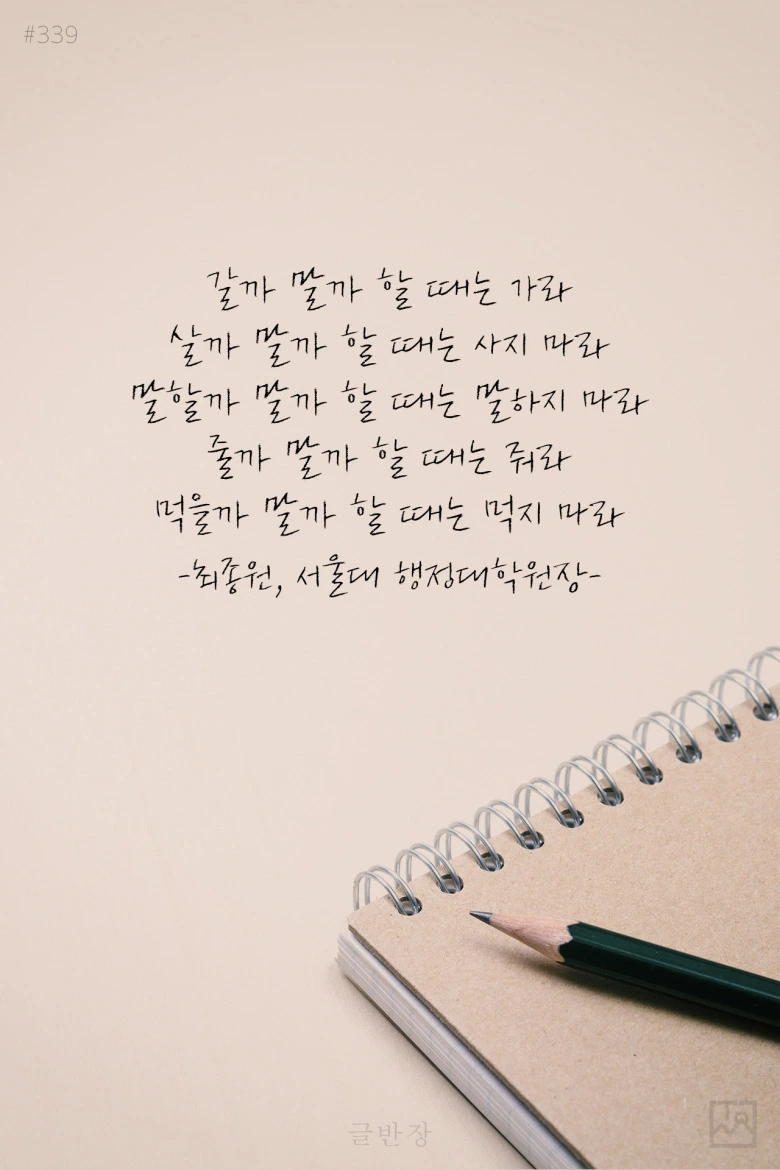 #339
갈까 말까 할 때는 가라
살까 말까 할 때는 사지 마라
말할까 말까 할 때는 말하지 마라
줄까 말까 할 때는 줘라
먹을까 말까 할 때는 먹지 마라
-최종원, 서울대 행정대학원장-
글반장